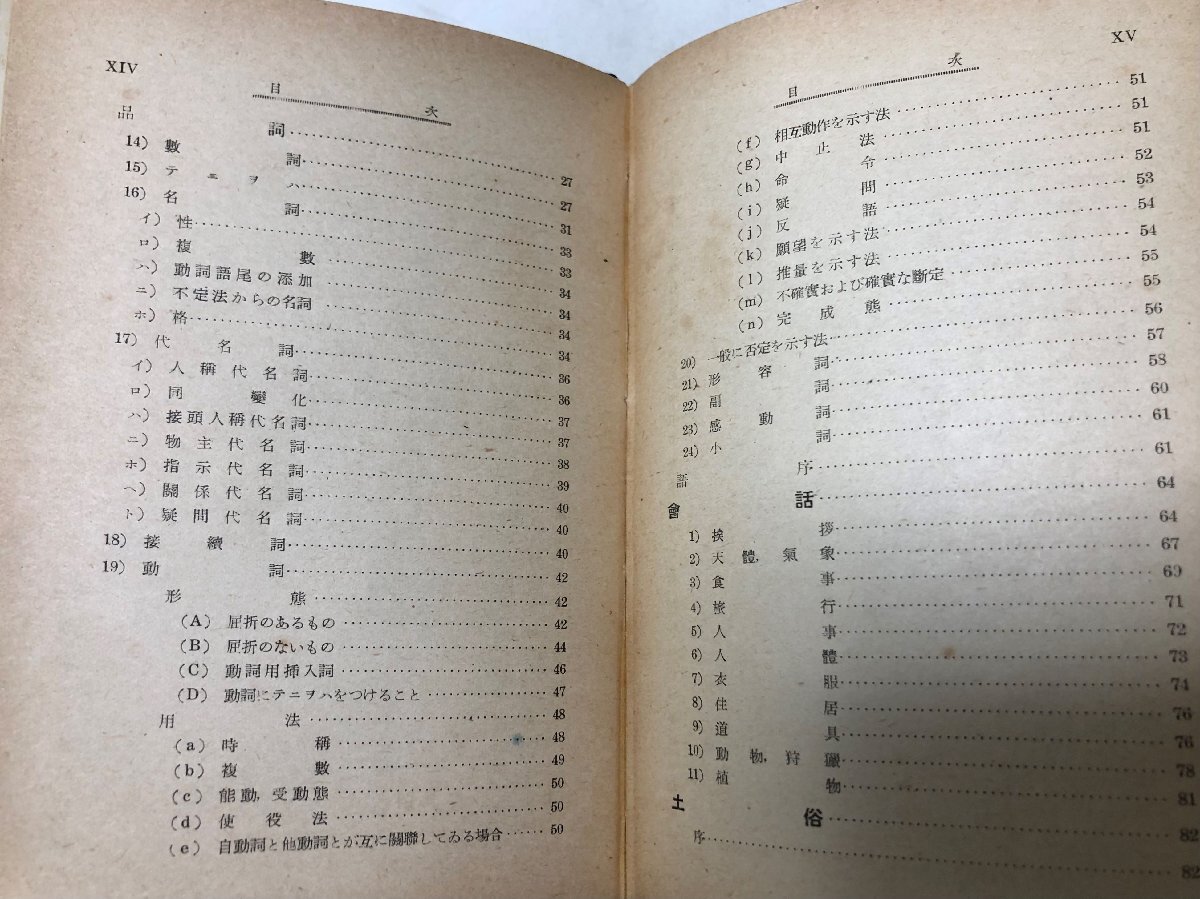 XIV
目次
品詞 27
14) 數詞 27
15) テニヲハ 31
16) 名詞 33
イ) 性 33
ロ) 複數 34
ハ) 動詞語尾の添加 34
ニ) 不定法からの名詞 34
ホ) 格 34
17) 代名詞 36
イ) 人稱代名詞 36
ロ) 同變化 37
ハ) 接頭人稱代名詞 37
ニ) 物主代名詞 38
ホ) 指示代名詞 39
ヘ) 關係代名詞 40
ト) 疑問代名詞 40
18) 接續詞 40
19) 動詞 42
形態 42
(A) 屈折のあるもの 42
(B) 屈折のないもの 44
(C) 動詞用挿入詞 46
(D) 動詞にテニヲハをつけること 47
用法 48
(a) 時稱 48
(b) 複數 49
(c) 能動, 受動態 50
(d) 使役法 50
(e) 自動詞と他動詞とが互に關聯してゐる場合 50
XV
目次
(f) 相互動作を示す法 51
(g) 中止法 51
(h) 命令 51
(i) 疑問 52
(j) 反語 53
(k) 願望を示す法 54
(l) 推量を示す法 54
(m) 不確實および確實な斷定 55
(n) 完成態 55
20) 一般に否定を示す法 56
21) 形容詞 57
22) 副詞 58
23) 感動詞 60
24) 小詞 61
話序 61
會話 64
1) 挨拶 64
2) 天體, 氣象 67
3) 食事 69
4) 旅行 71
5) 人事 72
6) 人體 73
7) 衣服 74
8) 住居 76
9) 道具 76
10) 動物, 狩獵 78
11) 植物 81
土俗 82
序 82